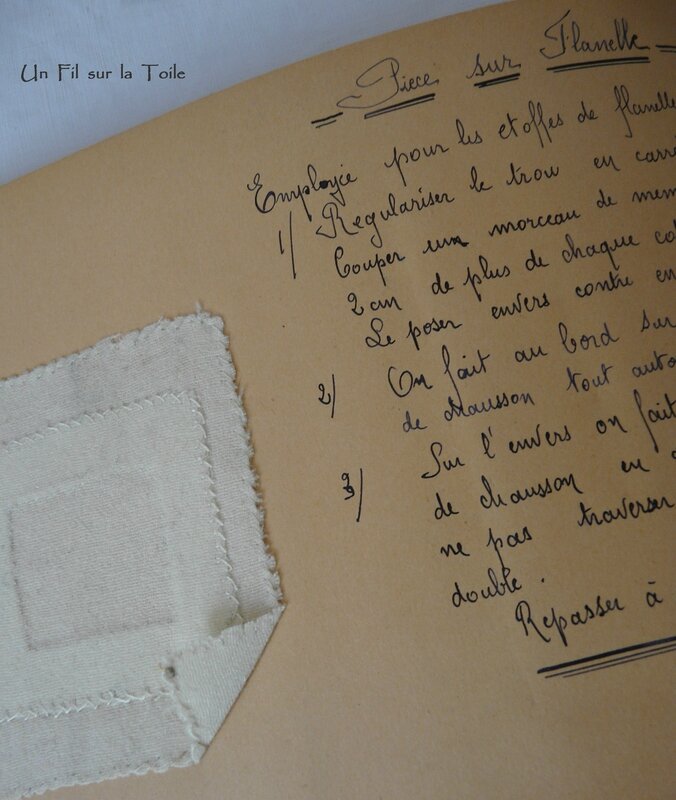 Un Fil sur la Toile
Piece sur Flanelle
Employée pour les etoffes de flanelle
1/ Regulariser le trou en carré
Couper un morceau de mem
2 cm de plus de chaque co
Le poser envers contre en
2/ On fait au bord sur
de chausson tout auto
3/ Sur l'envers on fait
de chausson en
ne pas traverser
double.
Repasser à